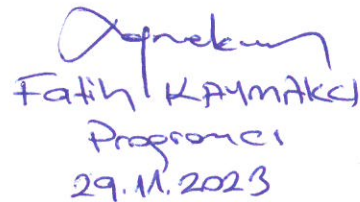 Fatih KAYMAKCI
Programcı
29.11.2023